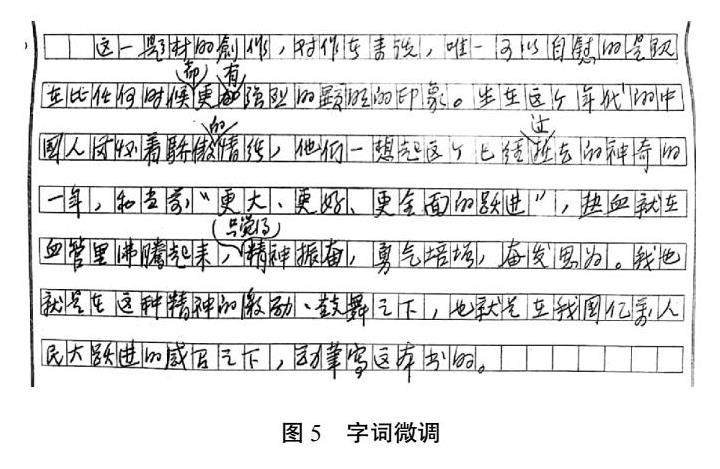 这一题材的創作，对作者来说，唯一可以自慰的是现
在比任何时候都更有强烈的鲜明的印象。生在这个年代的中
國人民怀着驕傲的情绪，他们一想起这个已经过去的神奇的
一年，和当前“更大、更好、更全面的跃进”，热血就在
血管里沸騰起来，只觉得精神振奋，勇气培增，奋发思为。我也
就是在这种精神的激励、鼓舞之下，也就是在我国亿万人
民大跃进的感召之下，动笔写这本书的。
图5 字词微调